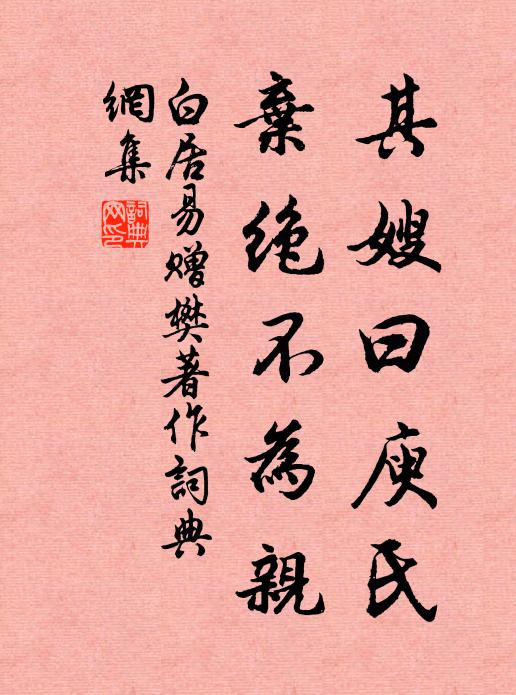 其嫂曰庾氏
棄絶不為親
白居易贈樊著作詞典
網集
詞典
网印